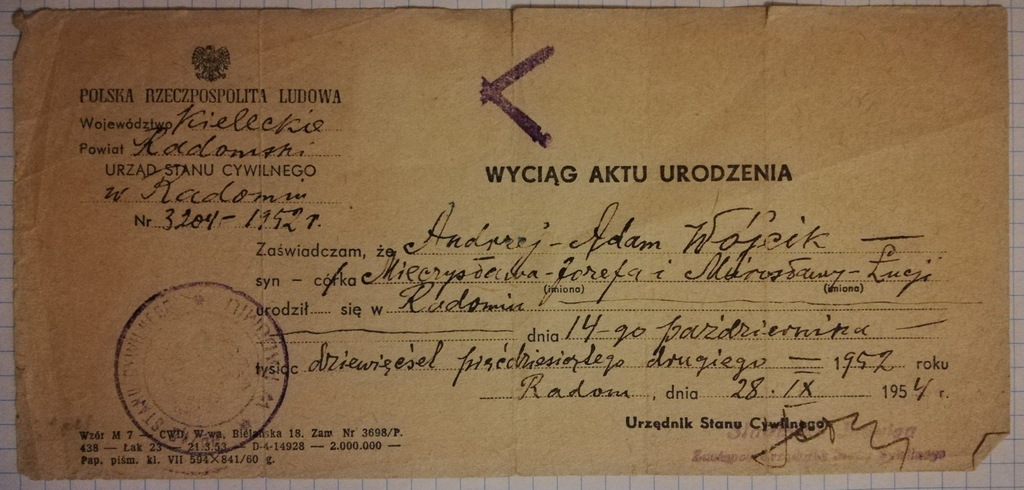 POLSKA RZECZPOSPOLITA LUDOWA
Województwo Kieleckie
Powiat Radomski
URZĄD STANU CYWILNEGO
w Radomiu
Nr 3204 - 1952 r.
WYCIĄG AKTU URODZENIA
Zaświadczam, że Andrzej - Adam Wójcik —
syn — córka Mieczysława - Józefa i Mirosławy - Łucji
(imiona) (imiona)
urodził się w Radomiu
dnia 14-go października —
tysiąc dziewięćset pięćdziesiątego drugiego = 1952 roku
Radom, dnia 28. IX 1954 r.
Urzędnik Stanu Cywilnego
Wzór M 7 — CWD, W-wa, Bielańska 18. Zam. Nr 3698/P.
438 — Łak 23 — 21.3.53. — D-4-14928 — 2.000.000 —
Pap. piśm. kl. VII 594×841/60 g.